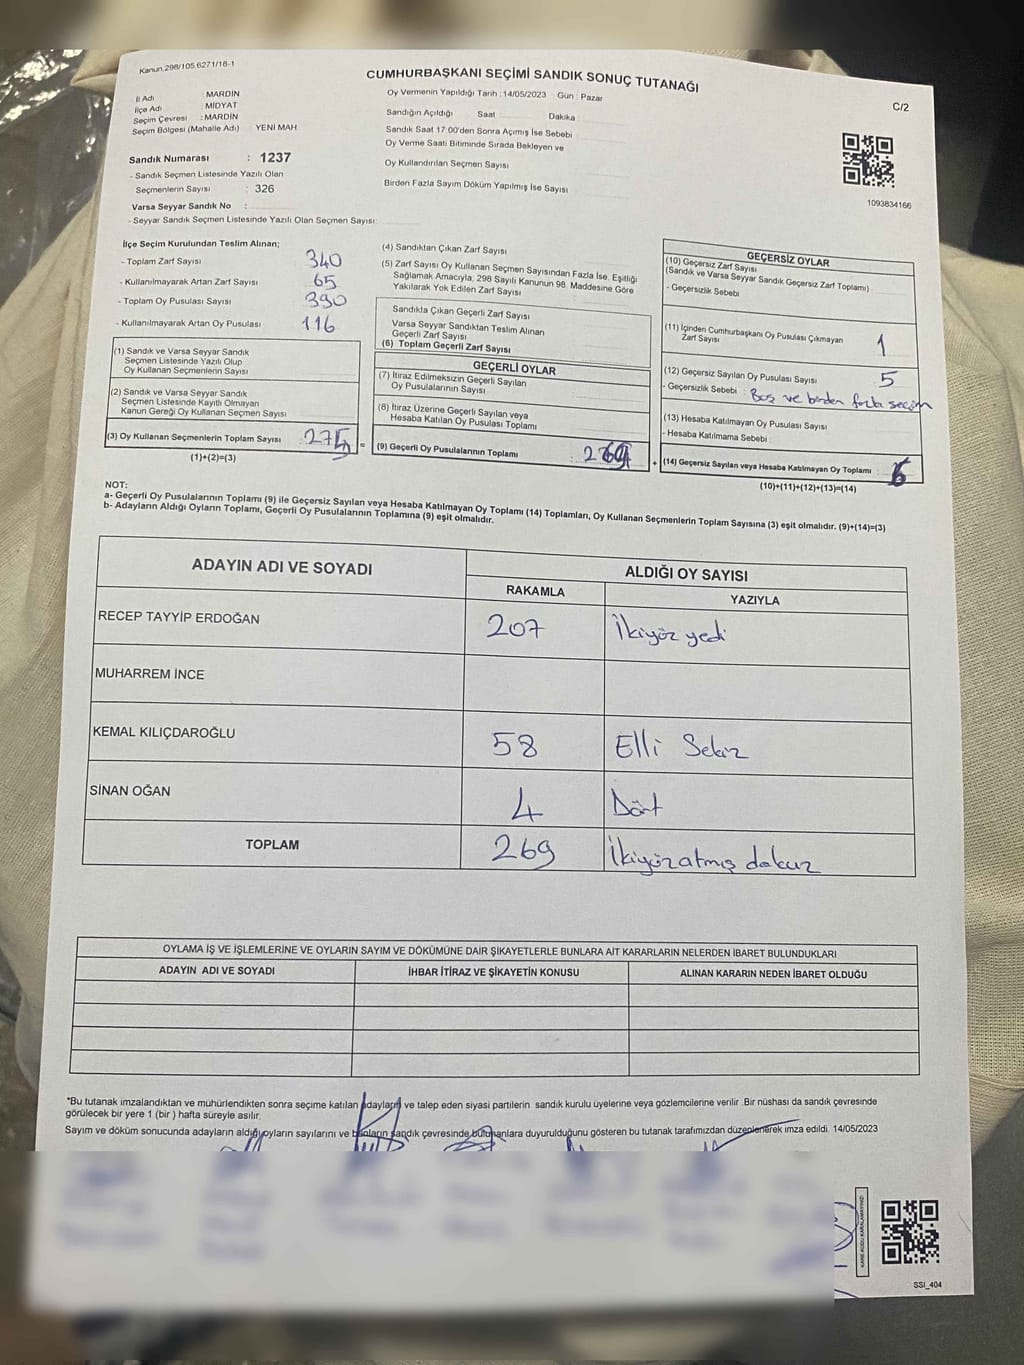 Kanun 298/105.6271/16-1
CUMHURBAŞKANI SEÇİMİ SANDIK SONUÇ TUTANAĞI
C/2
İl Adı : MARDİN
İlçe Adı : MİDYAT
Seçim Çevresi : MARDİN
Seçim Bölgesi (Mahalle Adı) YENİ MAH
Sandık Numarası : 1237
- Sandık Seçmen Listesinde Yazılı Olan
Seçmenlerin Sayısı : 326
Varsa Seyyar Sandık No :
- Seyyar Sandık Seçmen Listesinde Yazılı Olan Seçmen Sayısı:
Oy Vermenin Yapıldığı Tarih : 14/05/2023 Gün : Pazar
Sandığın Açıldığı Saat Dakika
Sandık Saat 17:00'den Sonra Açımış İse Sebebi
Oy Verme Saati Bitiminde Sırada Bekleyen ve
Oy Kullandırılan Seçmen Sayısı
Birden Fazla Sayım Döküm Yapılmış İse Sayısı
1093834166
İlçe Seçim Kurulundan Teslim Alınan;
- Toplam Zarf Sayısı 340
- Kullanılmayarak Artan Zarf Sayısı : 65
- Toplam Oy Pusulası Sayısı : 390
- Kullanılmayarak Artan Oy Pusulası : 116
(1) Sandık ve Varsa Seyyar Sandık
Seçmen Listesinde Yazılı Olup
Oy Kullanan Seçmenlerin Sayısı
(2) Sandık ve Varsa Seyyar Sandık
Seçmen Listesinde Kayıtlı Olmayan
Kanun Gereği Oy Kullanan Seçmen Sayısı
(3) Oy Kullanan Seçmenlerin Toplam Sayısı : 275 =
(1)+(2)=(3)
(4) Sandıktan Çıkan Zarf Sayısı
(5) Zarf Sayısı Oy Kullanan Seçmen Sayısından Fazla İse, Eşitliği
Sağlamak Amacıyla; 298 Sayılı Kanunun 98. Maddesine Göre
Yakılarak Yok Edilen Zarf Sayısı
Sandıkta Çıkan Geçerli Zarf Sayısı
Varsa Seyyar Sandıktan Teslim Alınan
Geçerli Zarf Sayısı
(6) Toplam Geçerli Zarf Sayısı
GEÇERLİ OYLAR
(7) İtiraz Edilmeksizin Geçerli Sayılan
Oy Pusulalarının Sayısı
(8) İtiraz Üzerine Geçerli Sayılan veya
Hesaba Katılan Oy Pusulası Toplamı
(9) Geçerli Oy Pusulalarının Toplamı : 269 +
GEÇERSİZ OYLAR
(10) Geçersiz Zarf Sayısı
(Sandık ve Varsa Seyyar Sandık Geçersiz Zarf Toplamı)
- Geçersizlik Sebebi
(11) İçinden Cumhurbaşkanı Oy Pusulası Çıkmayan
Zarf Sayısı 1
(12) Geçersiz Sayılan Oy Pusulası Sayısı 5
- Geçersizlik Sebebi : Boş ve birden fazla seçim
(13) Hesaba Katılmayan Oy Pusulası Sayısı
- Hesaba Katılmama Sebebi
(14) Geçersiz Sayılan veya Hesaba Katılmayan Oy Toplamı : 6
(10)+(11)+(12)+(13)=(14)
NOT:
a- Geçerli Oy Pusulalarının Toplamı (9) ile Geçersiz Sayılan veya Hesaba Katılmayan Oy Toplamı (14) Toplamları, Oy Kullanan Seçmenlerin Toplam Sayısına (3) eşit olmalıdır. (9)+(14)=(3)
b- Adayların Aldığı Oyların Toplamı, Geçerli Oy Pusulalarının Toplamına (9) eşit olmalıdır.
ADAYIN ADI VE SOYADI ALDIĞI OY SAYISI
RAKAMLA YAZIYLA
RECEP TAYYİP ERDOĞAN 207 İkiyüz yedi
MUHARREM İNCE
KEMAL KILIÇDAROĞLU 58 Elli Sekiz
SİNAN OĞAN 4 Dört
TOPLAM 269 İkiyüzatmış dokuz
OYLAMA İŞ VE İŞLEMLERİNE VE OYLARIN SAYIM VE DÖKÜMÜNE DAİR ŞİKAYETLERLE BUNLARA AİT KARARLARIN NELERDEN İBARET BULUNDUKLARI
ADAYIN ADI VE SOYADI İHBAR İTİRAZ VE ŞİKAYETİN KONUSU ALINAN KARARIN NEDEN İBARET OLDUĞU
*Bu tutanak imzalandıktan ve mühürlendikten sonra seçime katılan adayların ve talep eden siyasi partilerin sandık kurulu üyelerine veya gözlemcilerine verilir. Bir nüshası da sandık çevresinde
görülecek bir yere 1 (bir) hafta süreyle asılır.
Sayım ve döküm sonucunda adayların aldığı oyların sayılarını ve bunların sandık çevresinde bulunanlara duyurulduğunu gösteren bu tutanak tarafımızdan düzenlenerek imza edildi. 14/05/2023
KARE KODU KARALAMAYINIZ!
SSI_404